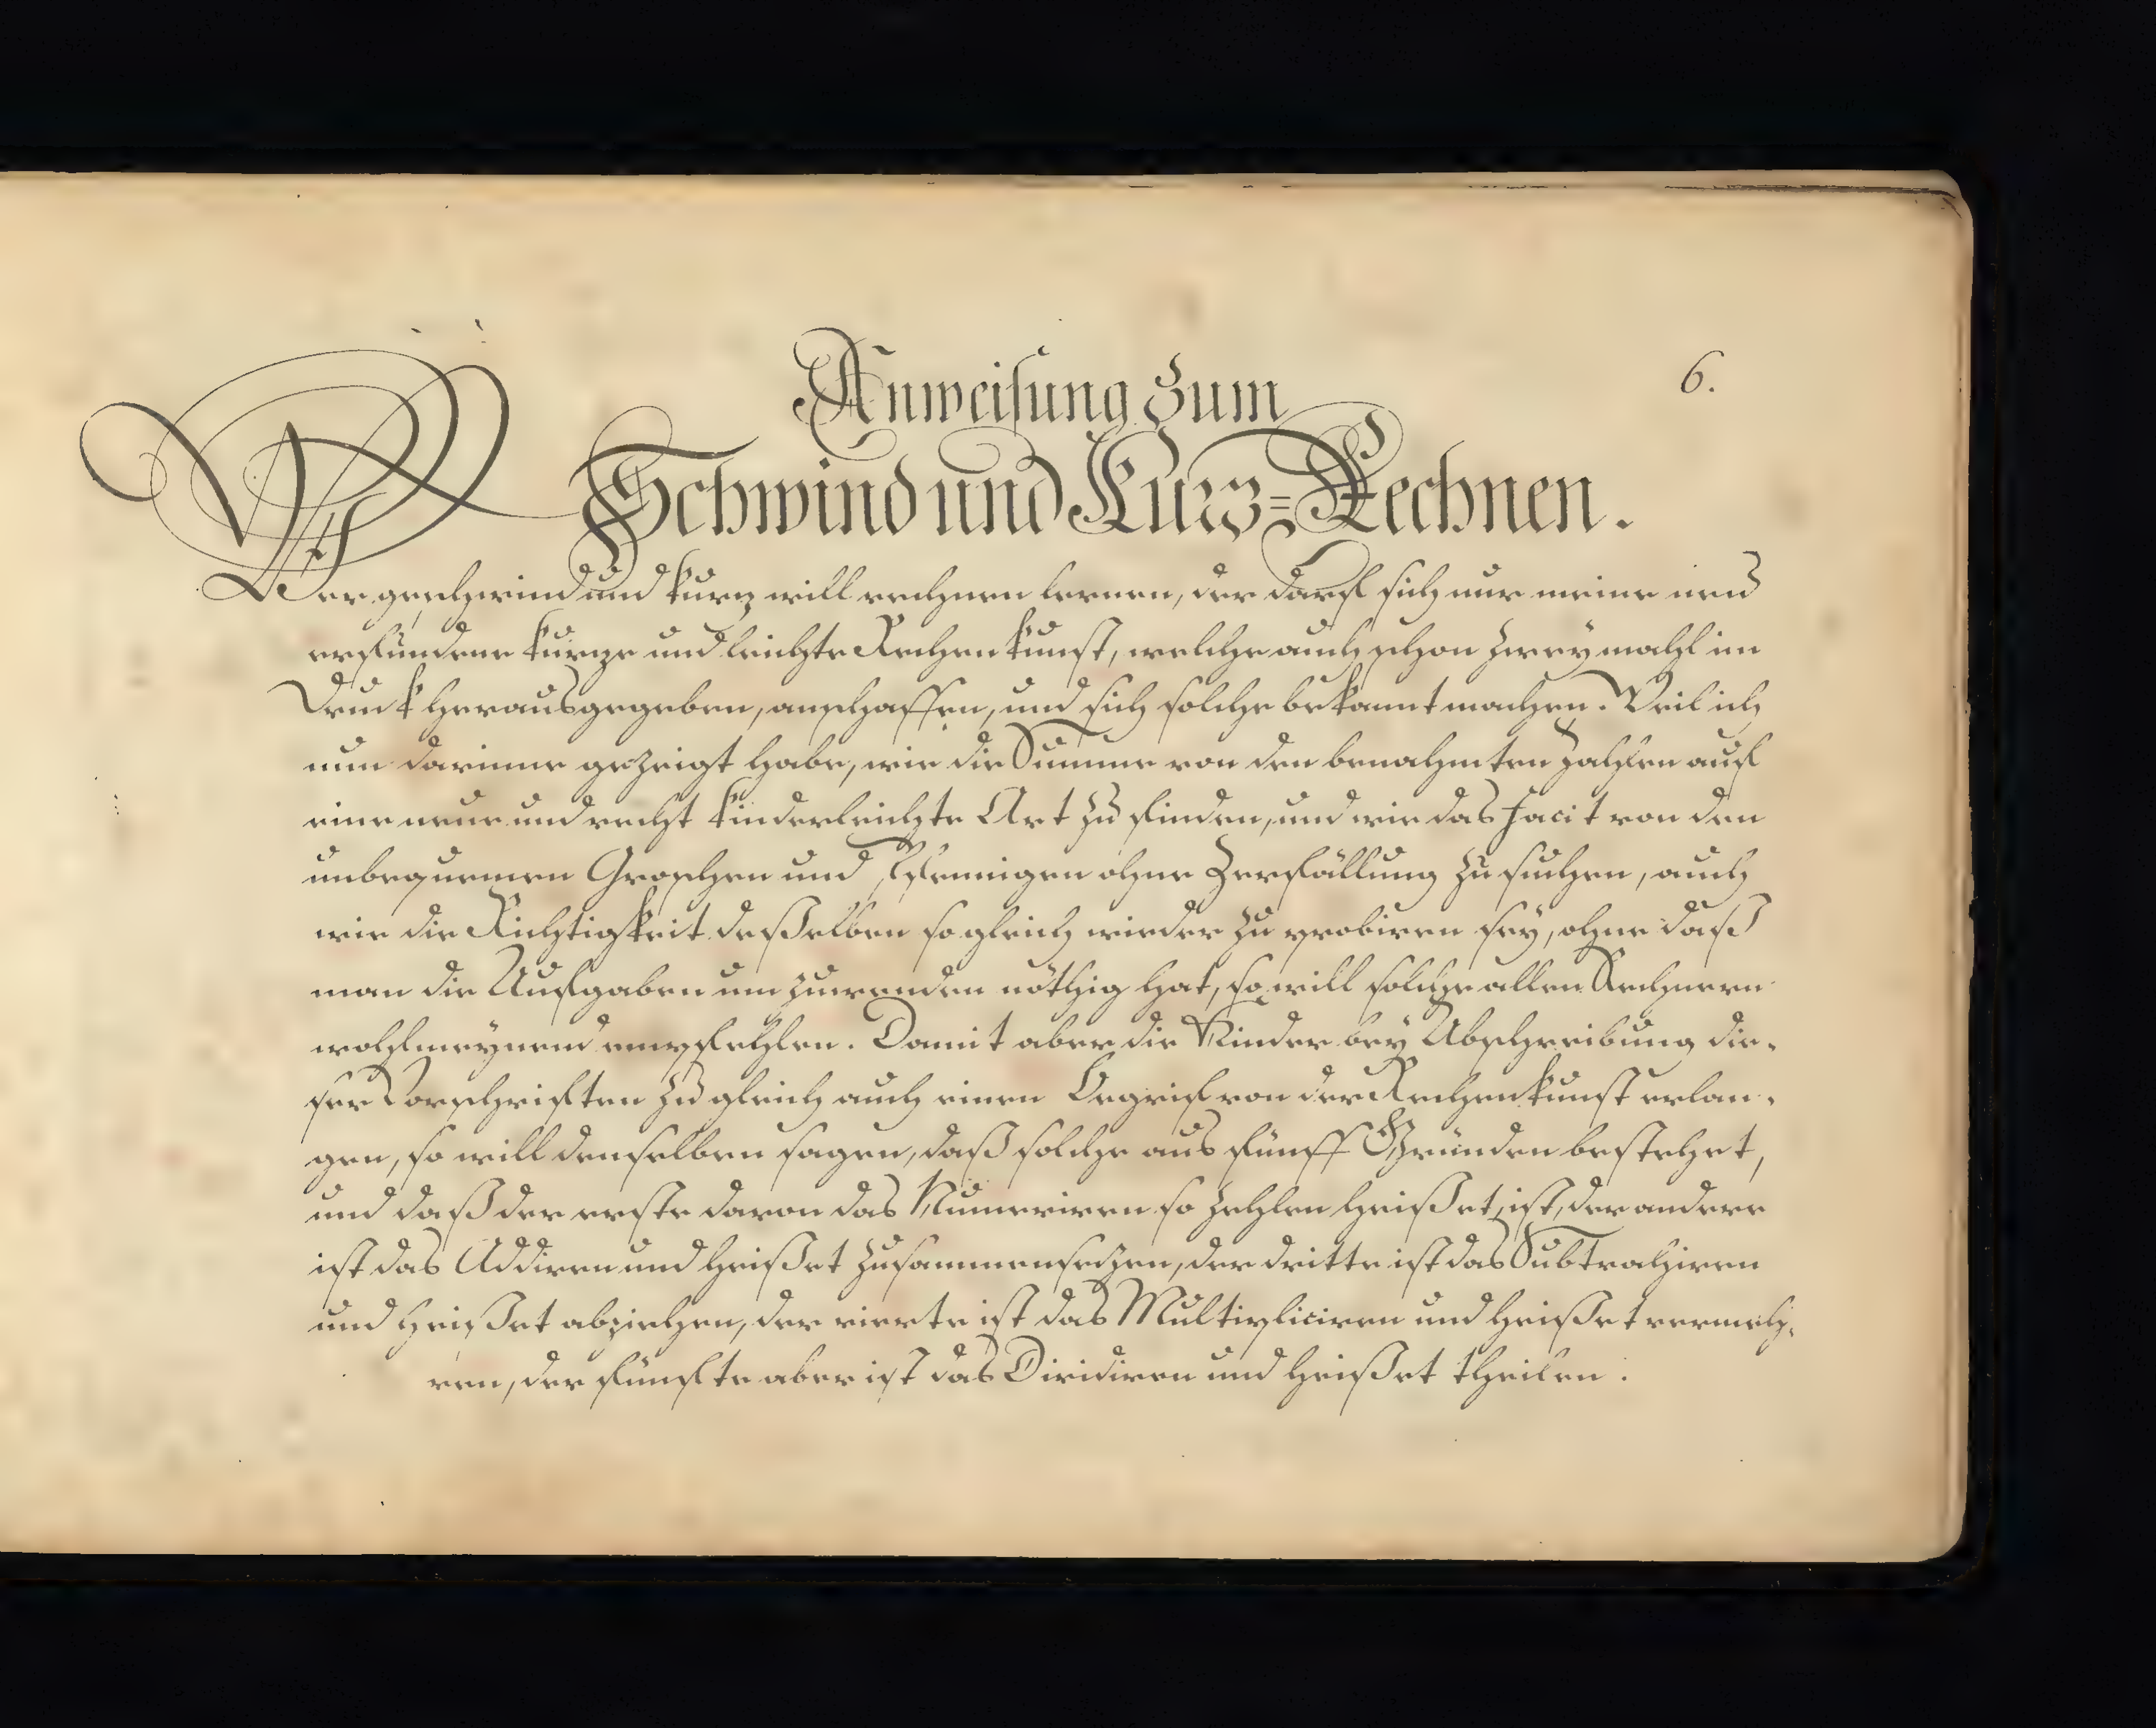 6.
Anweisung zum
Schwind und Kurz=Rechnen.
Wer geschwind und kurz will rechnen lernen, der darf sich nur meine neu
erfundene kurze und leichte Rechenkunst, welche auch schon zweymahl im
Druck herausgegeben, anschaffen, und sich solche bekannt machen. Weil ich
nun darinne gezeigt habe, wie die Summe von den benahmten Zahlen auf
eine neue und recht kinderleichte Art zu finden, und wie das Facit von den
unbequemen Groschen und Pfennigen ohne Zerfällung zu suchen, auch
wie die Richtigkeit deßelben sogleich wieder zu probiren sey, ohne daß
man die Aufgaben umzuwenden nöthig hat, so will solche allen Rechnern
wohlmeynend empfehlen. Damit aber die Kinder bey Abschreibung die-
ser Vorschriften zugleich auch einen Begrif von der Rechenkunst erlan-
gen, so will denselben sagen, daß solche aus fünff Gründen bestehet,
und daß der erste davon das Numeriren so zehlen heißet, ist, der andere
ist das Addiren und heißet zusammensetzen, der dritte ist das Subtrahiren
und heißet abziehen, der vierte ist das Multipliciren und heißet vermeh-
ren, der fünfte aber ist das Dividiren und heißet theilen.